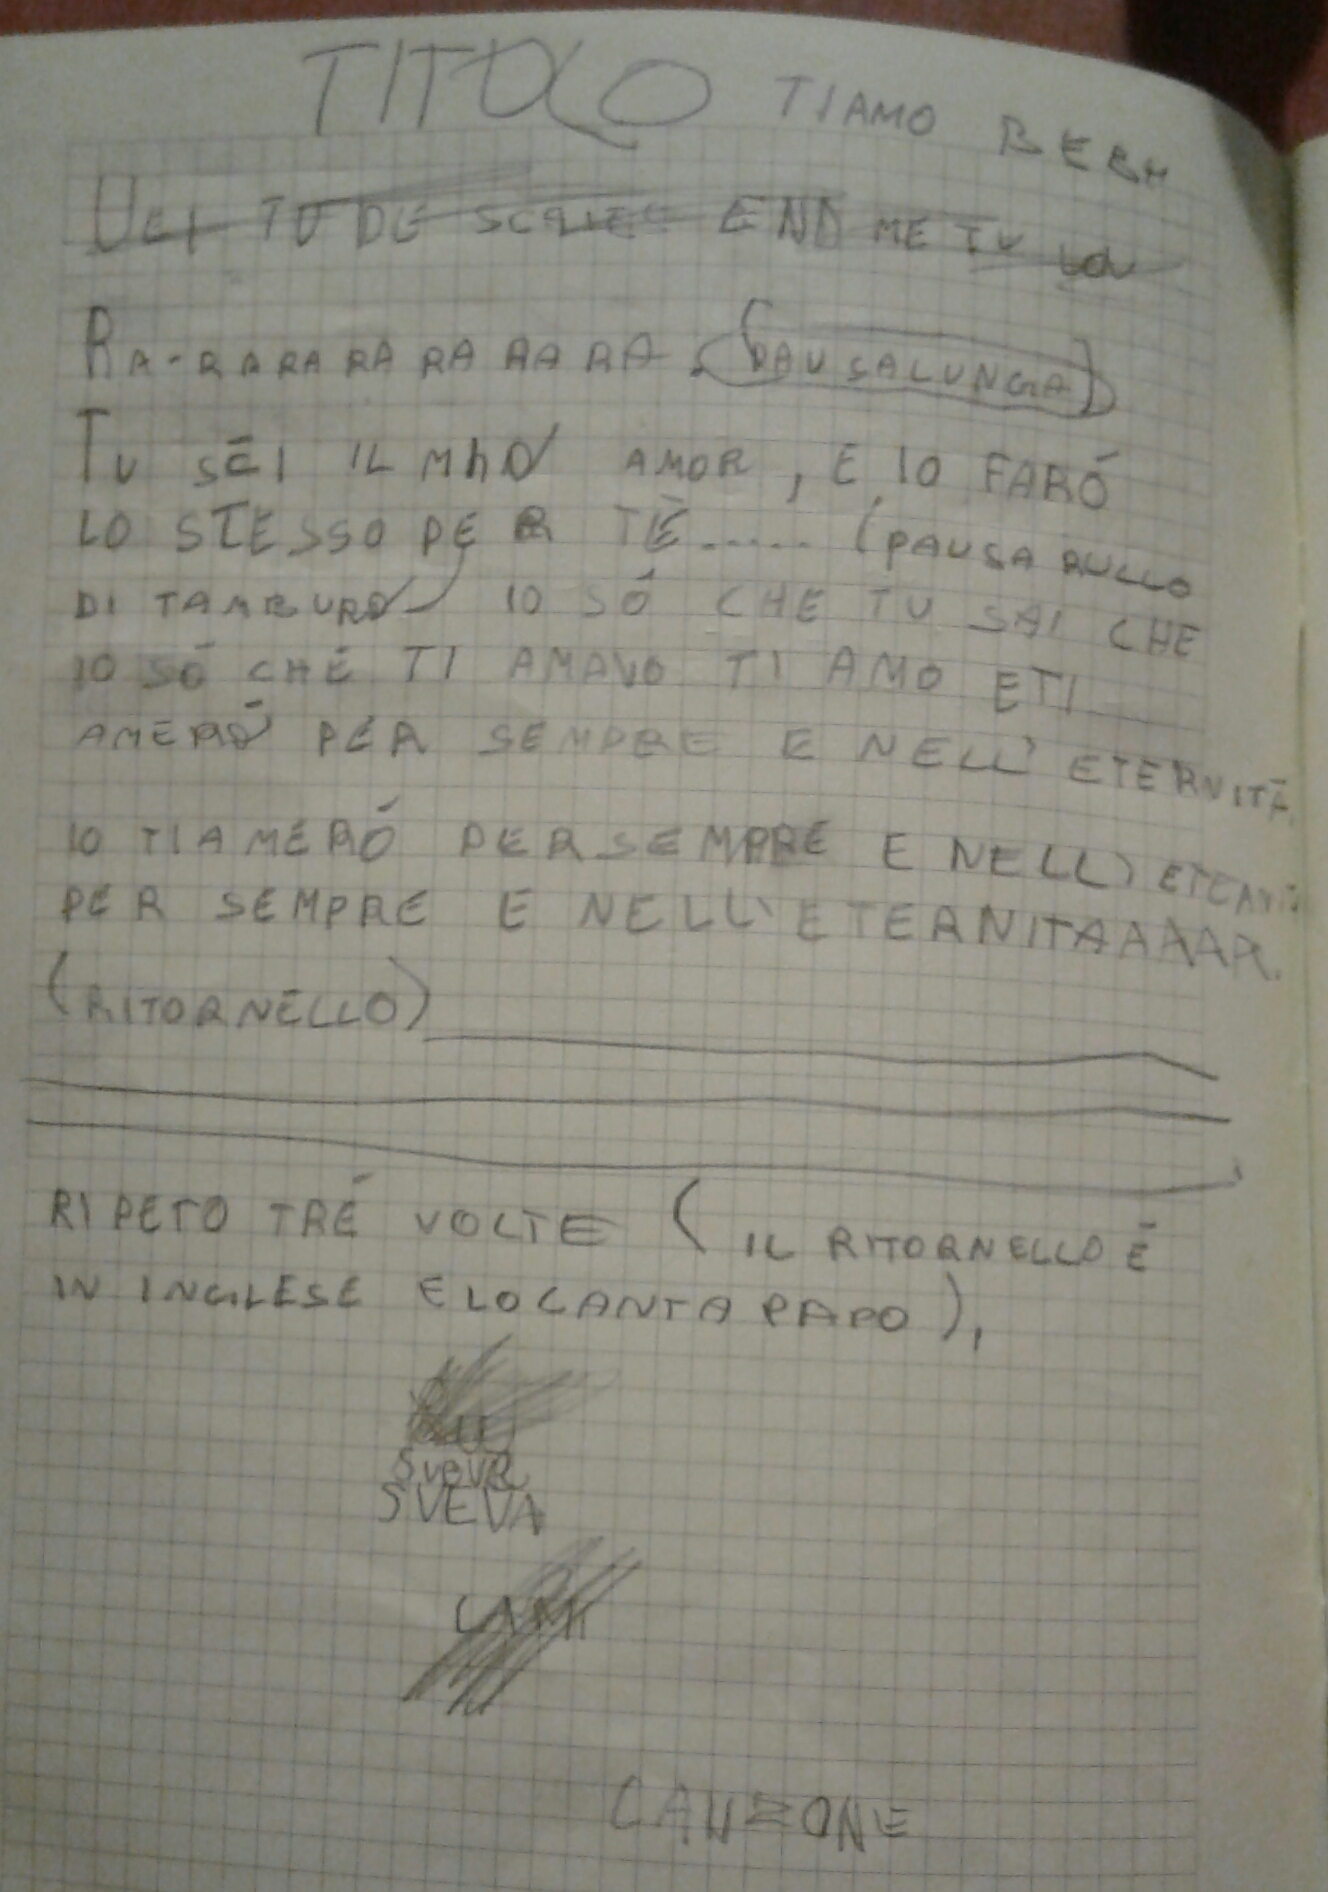 TITOLO TIAMO BEBH
UEI TU DE END ME TU
RA-RARARARARARARA (PAUSALUNGA)
TU SEI IL AMOR, E IO FARÓ
LO STESSO PER TÉ..... (PAUSA RULLO
DI TAMBURO) IO SÓ CHE TU SAI CHE
IO SÓ CHE TI AMAVO TI AMO ETI
AMERÓ PER SEMPRE E NELL'ETERNITÁ
IO TIAMERÓ PER SEMPRE E NELL'
PER SEMPRE E NELL'ETERNITAAAAA.
(RITORNELLO)
RIPETO TRÉ VOLTE (IL RITORNELLO É
IN INGLESE E LO CANTA PAPO),
SVEVA
SVEVA
CANZONE